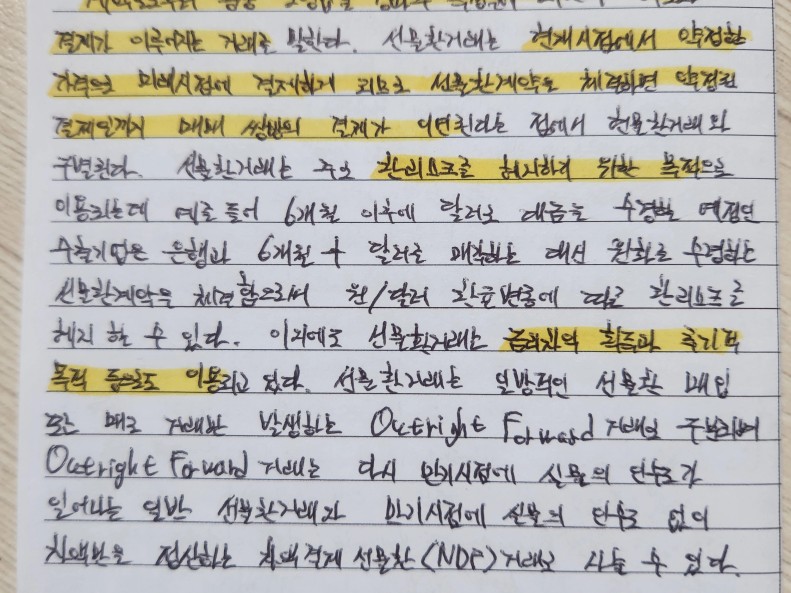 결제가 이루어지는 거래를 말한다. 선물환거래는 현재시점에서 약정한
가격으로 미래시점에 결제하게 되므로 선물환계약을 체결하면 약정된
결제일까지 매매 쌍방의 결제가 이연된다는 점에서 현물환거래와
구별된다. 선물환거래는 주로 환리스크를 헤지하기 위한 목적으로
이용되는데 예를 들어 6개월 이후에 달러로 대금을 수령할 예정인
수출기업은 은행과 6개월 후 달러를 매각하는 대신 원화를 수령하는
선물환계약을 체결함으로써 원/달러 환율변동에 따른 환리스크를
헤지 할 수 있다. 이외에도 선물환거래는 금리차익 획득과 투기적
목적 등으로도 이용되고 있다. 선물환거래는 일방적인 선물환 매입
또는 매도 거래만 발생하는 Outright Forward 거래로 구분되며
Outright Forward 거래는 다시 만기시점에 실물의 인수도가
일어나는 일반 선물환거래와 만기시점에 실물의 인수도 없이
차액만을 정산하는 차액결제 선물환(NDF)거래로 나눌 수 있다.